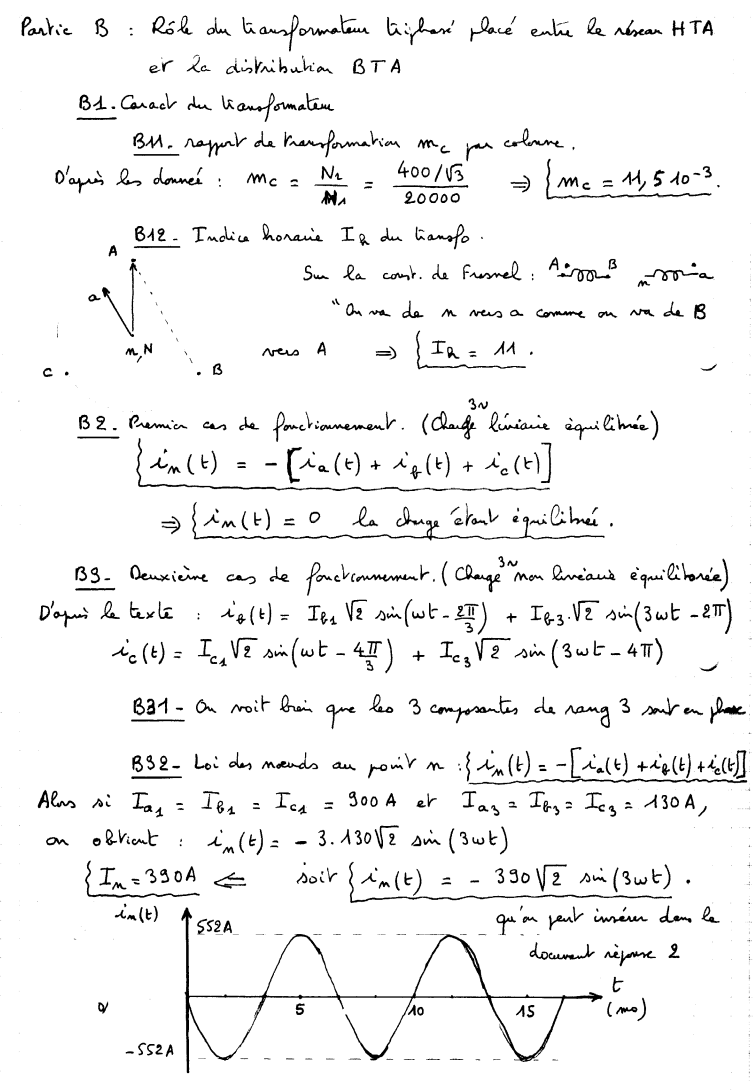 Partie B : Rôle du transformateur triphasé placé entre le réseau HTA
et la distribution BTA
B1. Caract du transformateur
B11. rapport de transformation mc par colonne.
D'après les donnée : mc = N2/N1 = (400/√3)/20000 ⇒ { mc = 11,5 10⁻³.
B12 - Indice horaire IR du transfo.
A
Sur la const. de Fresnel : A B n a
a
"On va de n vers a comme on va de B
n,N
vers A ⇒ { IR = 11 .
c . . B
3~
B2. Premier cas de fonctionnement. (Charge linéaire équilibrée)
{ in(t) = - [ia(t) + ib(t) + ic(t)]
⇒ { in(t) = 0 la charge étant équilibrée.
3~
B3- Deuxième cas de fonctionnement. (Charge non linéaire équilibrée)
D'après le texte : ib(t) = Ib1 √2 sin(ωt - 2π/3) + Ib3.√2 sin(3ωt - 2π)
ic(t) = Ic1 √2 sin(ωt - 4π/3) + Ic3 √2 sin(3ωt - 4π)
B31 - On voit bien que les 3 composantes de rang 3 sont en phase
B32- Loi des nœuds au point n : { in(t) = -[ia(t) + ib(t) + ic(t)]
Alors si Ia1 = Ib1 = Ic1 = 900 A et Ia3 = Ib3 = Ic3 = 130 A,
on obtient : in(t) = - 3.130√2 sin(3ωt)
{ In = 390A ⇐ soit { in(t) = - 390√2 sin(3ωt) .
in(t)
552A
qu'on peut insérer dans le
document réponse 2
t
(ms)
0
5
10
15
-552A